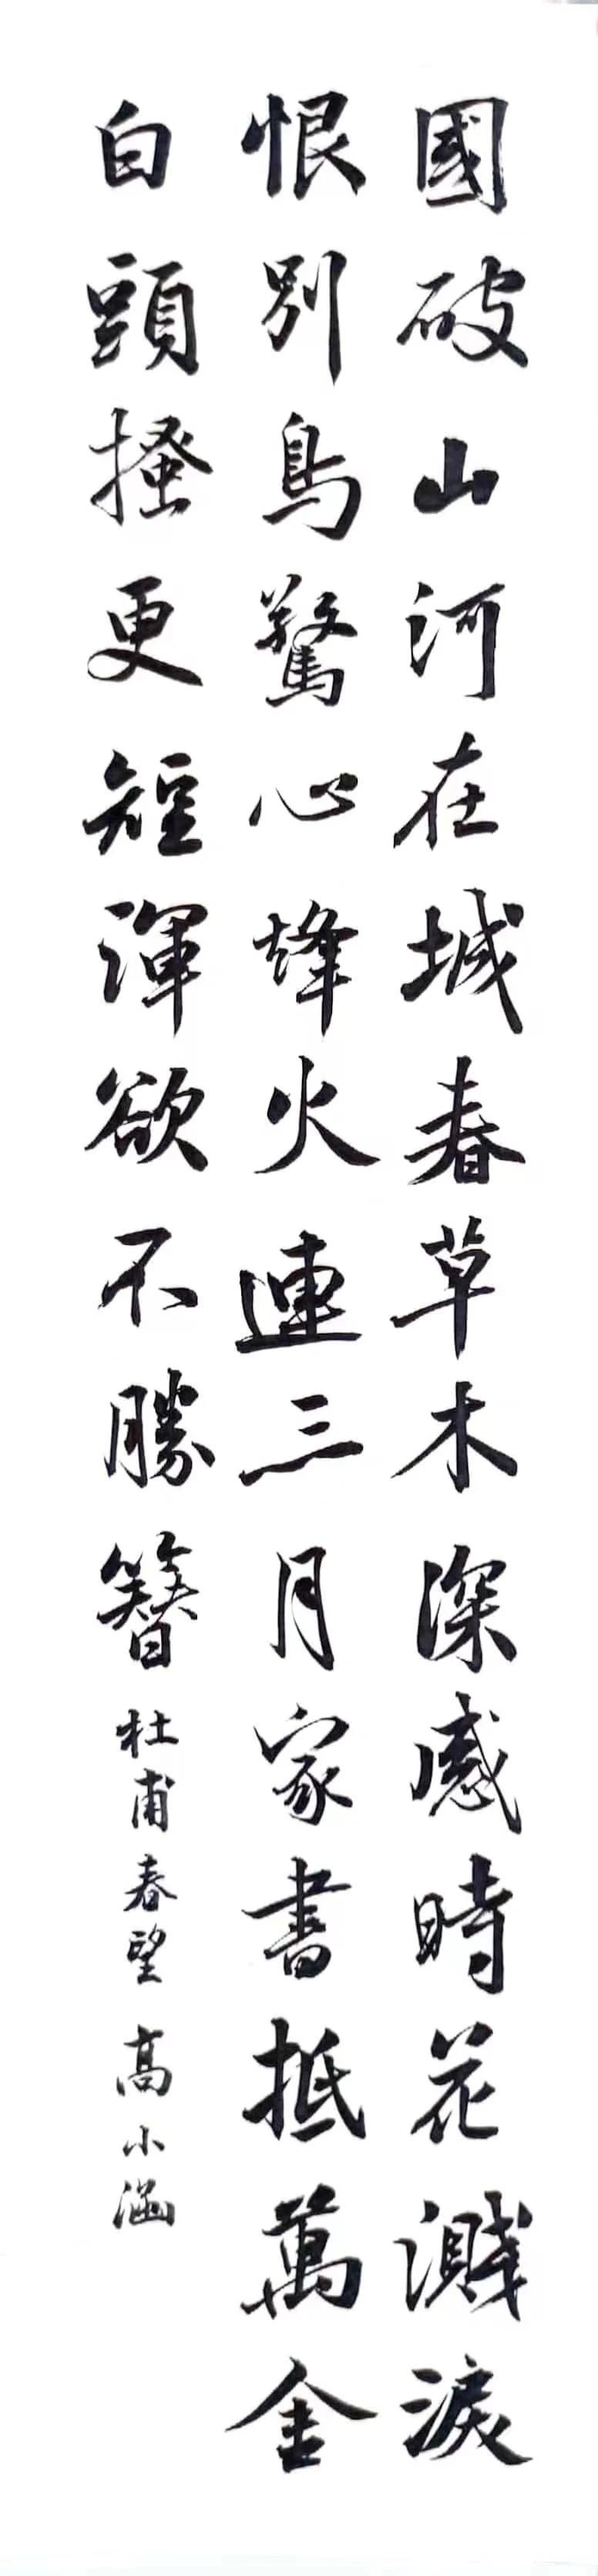 國破山河在城春草木深感時花濺淚
恨別鳥驚心烽火連三月家書抵萬金
白頭搔更短渾欲不勝簪 杜甫春望 高小涵